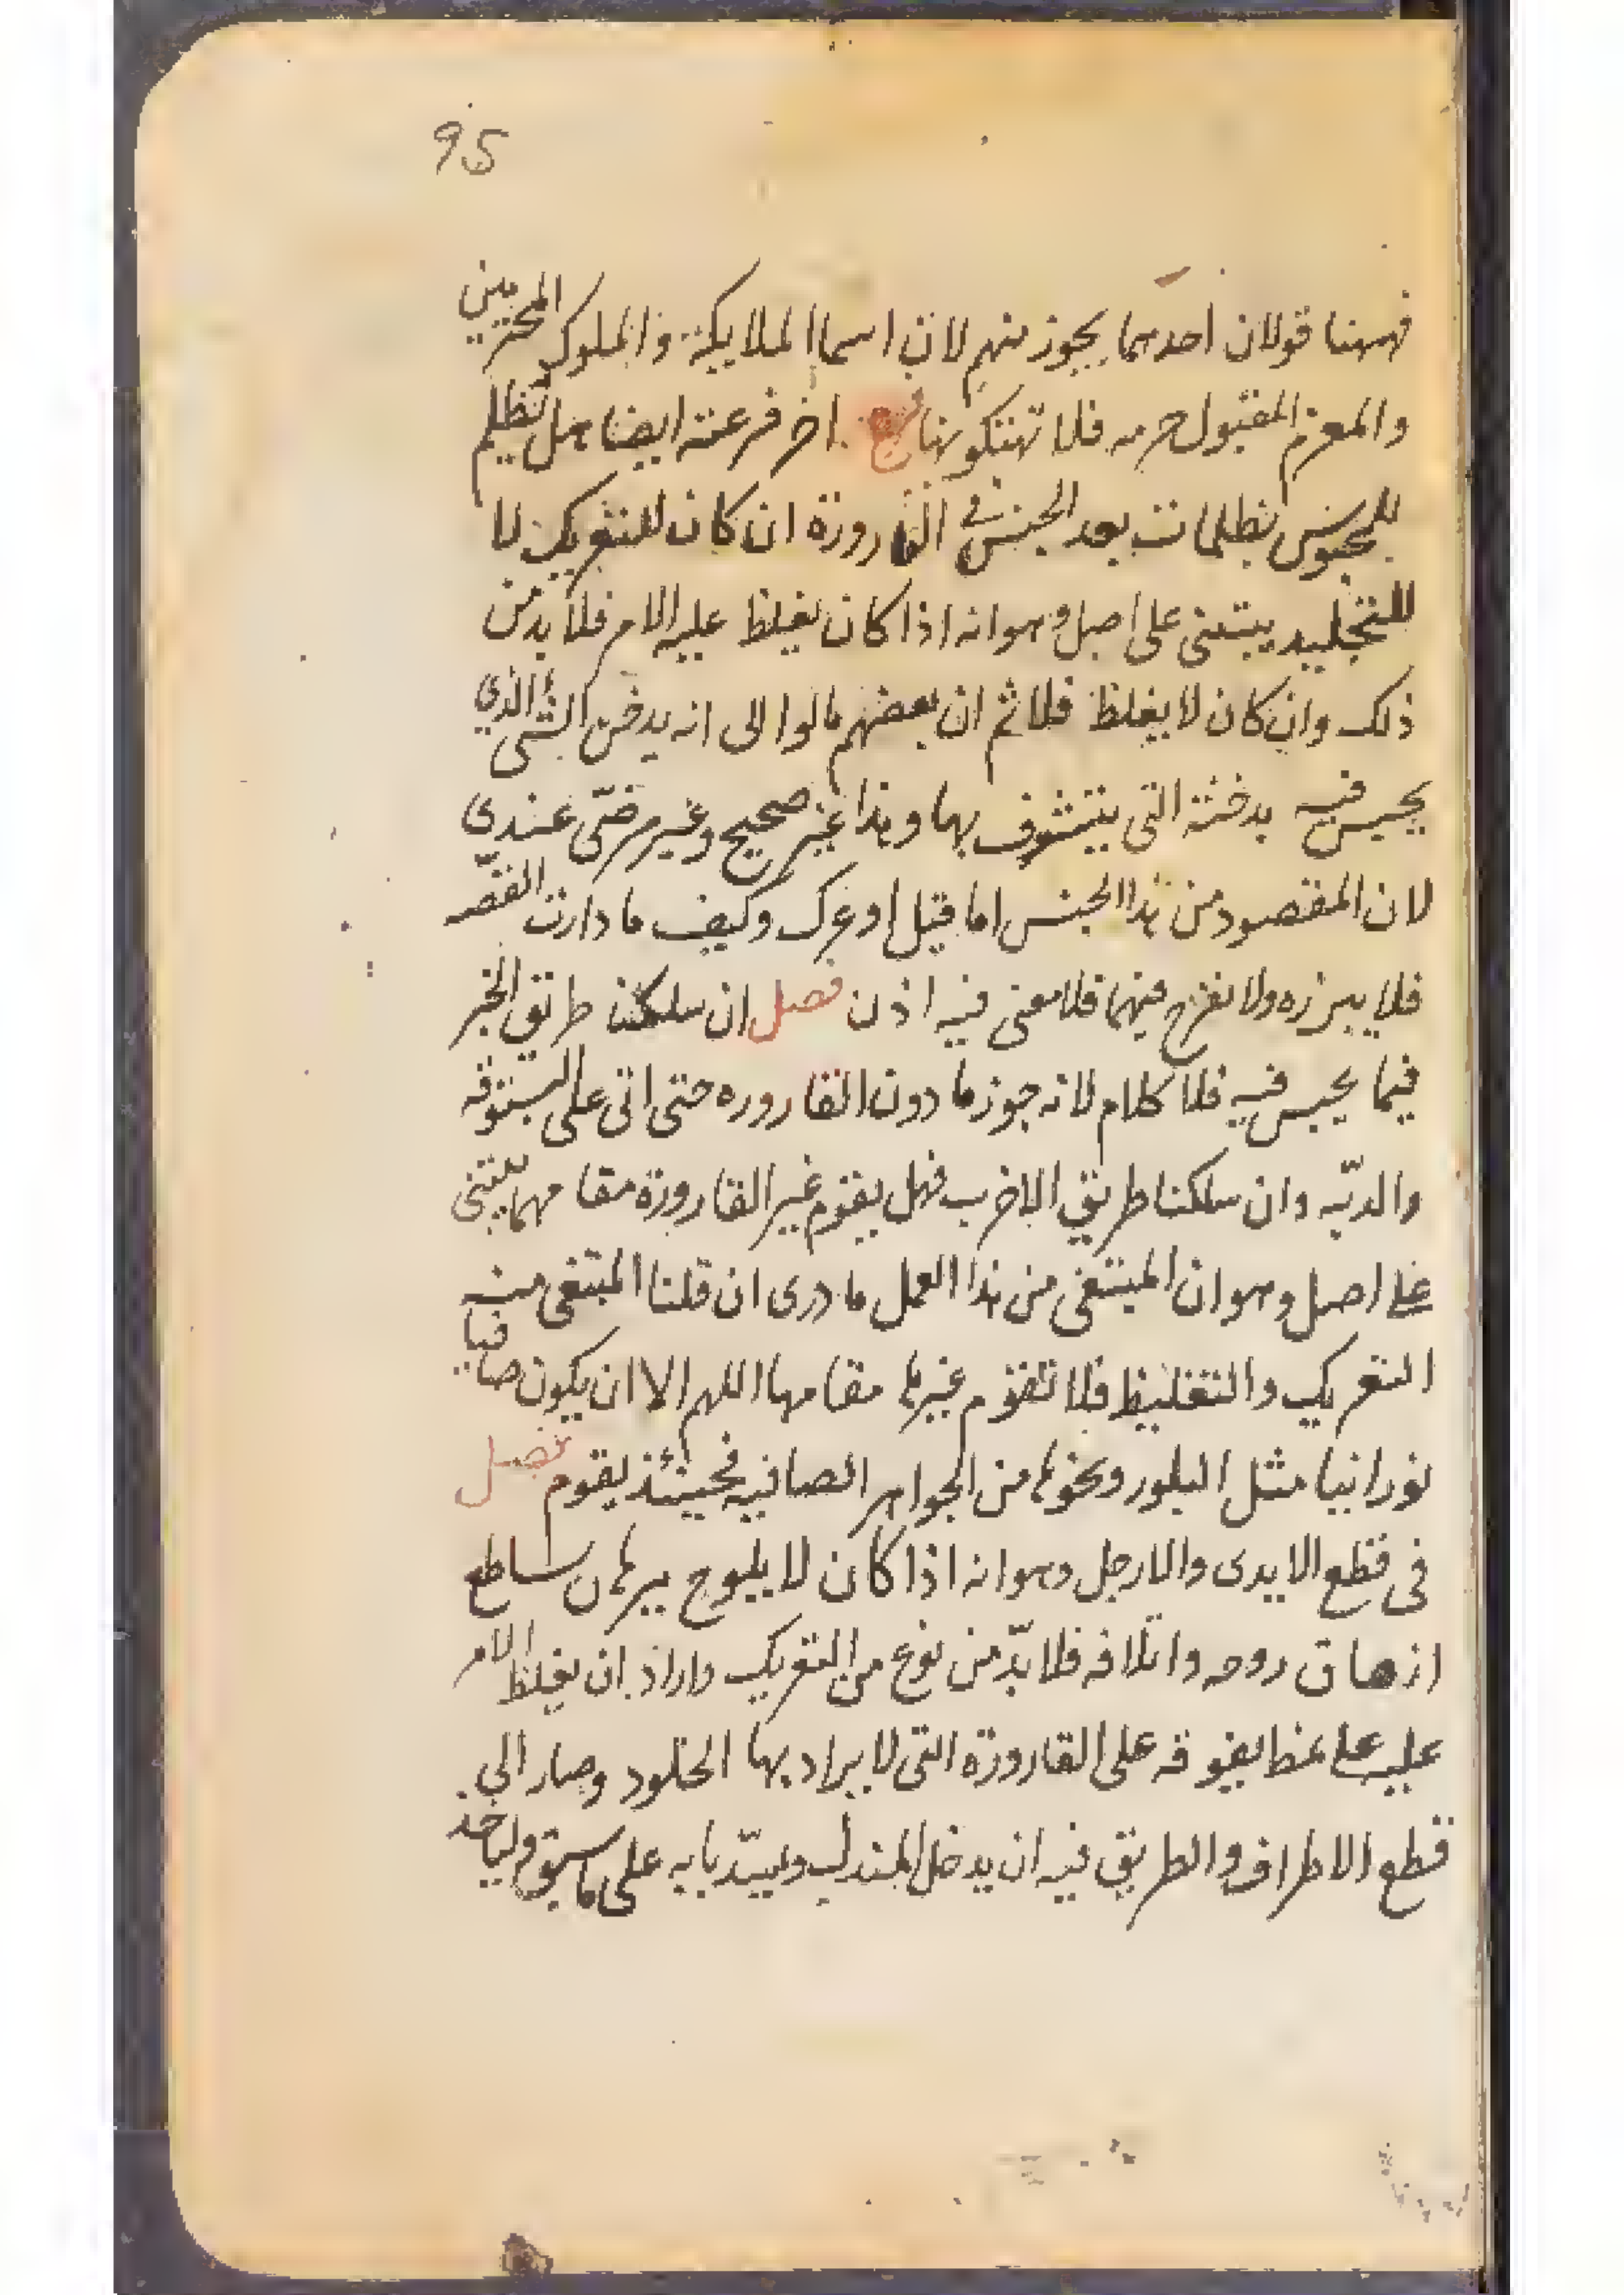 95
فههنا قولان احدهما يجوز منهم لان اسما الملايكة والملوك
والمعزم المقبول حرمه فلا تهتكونها فرع اخر فرعته ايضا هل تظلم
للمحبوس بظلمات بعد الحبس في القارورة ان كان للتعريك لا
للتخليد يبتنى على اصل وهو انه اذا كان يغلظ عليه الامر فلا بد من
ذلك وان كان لا يغلظ فلا ثم ان بعضهم مالوا الى انه يدخن الشئ الذي
يحبس فيه بدخنته التى يتشوف بها وهذا غير صحيح وغير مرضىّ عندى
لان المقصود من هذا الحبس اما قتل او عرك وكيف ما دارت القصه
فلا يبرزه ولا تفرج فيهما فلا معنى فيه اذن فصل ان سلكنا طريق الخبر
فيما يحبس فيه فلا كلام لانه جوز ما دون القاروره حتى اتى على البستوقه
والدبّه وان سلكنا طريق الاخر ب فهل يقوم غير القارورة مقامها يبتنى
على اصل وهو ان المبتغى من هذا العمل ما درى ان قلنا المبتغى منه
التعريك والتغليظ فلا تقوم غيرها مقامها اللهم الا ان يكون صافيا
نورانيا مثل البلور ونحوها من الجواهر الصافيه فحينئذ يقوم فصل
فى قطع الايدى والارجل وهو انه اذا كان لا يلوح برهان ساطع
ازهاق روحه واتلافه فلا بدّ من نوع من التعريك واراد ان يغلظ الامر
عليه على نمط يفوقه على القارورة التى لا يراد بها الخلود وصار الى
قطع الاطراف والطريق فيه ان يدخل المندل ويسدّ بابه على ما سبق وليأخذ